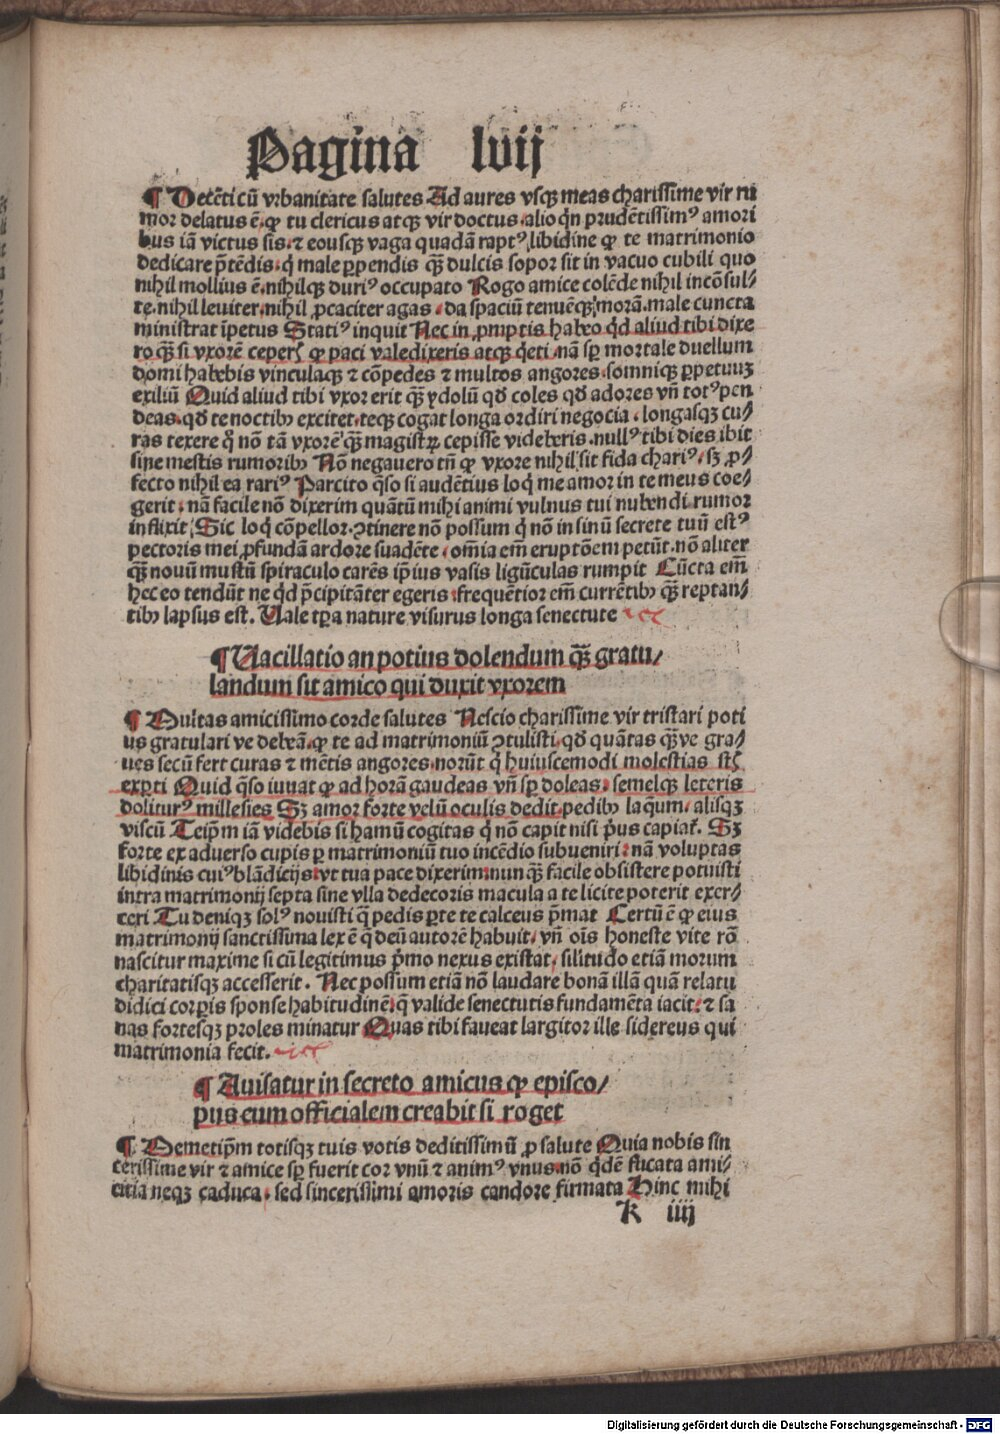 Pagina lvij
¶ Decēti cū vrbanitate salutes Ad aures vsq̨ meas charissime vir ru
mor delatus ē. ꝙ tu clericus atq̨ vir doctus. alioq̇n prudētissimꝰ amori
bus iā victus sis. ⁊ eousq̨ vaga quadā raptꝰ libidine ꝙ te matrimonio
dedicare p̄tēdis. q̇ male ꝑpendis q̄ȝ dulcis sopor sit in vacuo cubili quo
nihil mollius ē. nihilq̨ duriꝰ occupato Rogo amice colēde nihil incōsul⸗
te. nihil leuiter. nihil ꝓcaciter agas. da spaciū tenuēq̨ morā. male cuncta
ministrat īpetus Statiꝰ inquit Nec in ꝓmptis habeo q̇d aliud tibi dixe
ro q̄ȝ si vxorē ceperꝭ ꝙ paci valedixeris atq̨ q̇eti. nā sꝑ mortale duellum
domi habebis vinculaq̨ ⁊ cōpedes ⁊ multos angores. somniq̨ ꝑpetuuȝ
exiliū Quid aliud tibi vxor erit q̄ȝ ydolū qd̄ coles qd̄ adores vn̄ totꝰ pen
deas. qd̄ te noctibꝫ excitet. teq̨ cogat longa ordiri negocia. longasqꝫ cu⸗
ras texere q̇ nō tā vxorē q̄ȝ magistꝝ cepisse videberis. nullꝰ tibi dies ibit
sine mestis rumoribꝫ Nō negauero tn̄ ꝙ vxore nihil sit fida chariꝰ. sꝫ ꝓ⸗
fecto nihil ea rariꝰ Parcito q̄so si audētius loq̇ me amor in te meus coe⸗
gerit. nā facile nō dixerim quātū mihi animi vulnus tui nubendi rumor
inflixit Sic loq̇ cōpellor. ꝯtinere nō possum q̇ nō in sinū secrete tuū estꝰ
pectoris mei ꝓfundā ardore suadēte. om̄ia em̄ eruptōem petūt. nō aliter
q̄ȝ nouū mustū spiraculo carēs īpius vasis ligūculas rumpit Cūcta em̄
hec eo tendūt ne q̇d p̄cipitāter egeris. frequētior em̄ currētibꝫ q̄ȝ reptan⸗
tibꝫ lapsus est. Uale tꝑa nature visurus longa senectute
¶ Uacillatio an potius dolendum q̄ȝ gratu⸗
landum sit amico qui duxit vxorem
¶ Multas amicissimo corde salutes Nescio charissime vir tristari poti
us gratulari ve debeā. ꝙ te ad matrimoniū ꝯtulisti. qd̄ quātas q̄ȝve gra⸗
ues secū fert curas ⁊ mētis angores. norūt q̇ huiuscemodi molestias st̄ꝭ
exꝑti Quid q̄so iuuat ꝙ ad horā gaudeas vn̄ sꝑ doleas. semelq̨ leteris
doliturꝰ millesies Sꝫ amor forte velū oculis dedit. pedibꝫ laq̄um. alisqꝫ
viscū Teip̄m iā videbis si hamū cogitas q̇ nō capit nisi p̄us capiat̄. Sꝫ
forte ex aduerso cupis ꝑ matrimoniū tuo incēdio subueniri. nā voluptas
libidinis cuiꝰ blādicijs vt tua pace dixerim. nun q̄ȝ facile obsistere potuisti
intra matrimonij septa sine vlla dedecoris macula a te licite poterit exer⸗
ceri Tu deniqꝫ solꝰ nouisti q̄ pedis ꝑte te calceus p̄mat Certū ē ꝙ eius
matrimonij sanctissima lex ē q̄ deū autorē habuit. vn̄ oīs honeste vite rō
nascitur maxime si cū legitimus p̄mo nexus existat. silitudo etiā morum
charitatisqꝫ accesserit. Nec possum etiā nō laudare bonā illā quā relatu
didici corꝑis sponse habitudinē. q̄ valide senectutis fundamēta iacit. ⁊ sa
nas fortesqꝫ proles minatur Quas tibi faueat largitor ille sidereus qui
matrimonia fecit.
¶ Auisatur in secreto amicus ꝙ episco⸗
pus eum officialem creabit si roget
¶ Demetip̄m totisqꝫ tuis votis deditissimū ꝓ salute Quia nobis sin
cerissime vir ⁊ amice sꝑ fuerit cor vnū ⁊ animꝰ vnus. nō q̇dē fucata ami⸗
citia neqꝫ caduca. sed sincerissimi amoris candore firmata Hinc mihi
k iiij
Digitalisierung gefördert durch die Deutsche Forschungsgemeinschaft - DFG